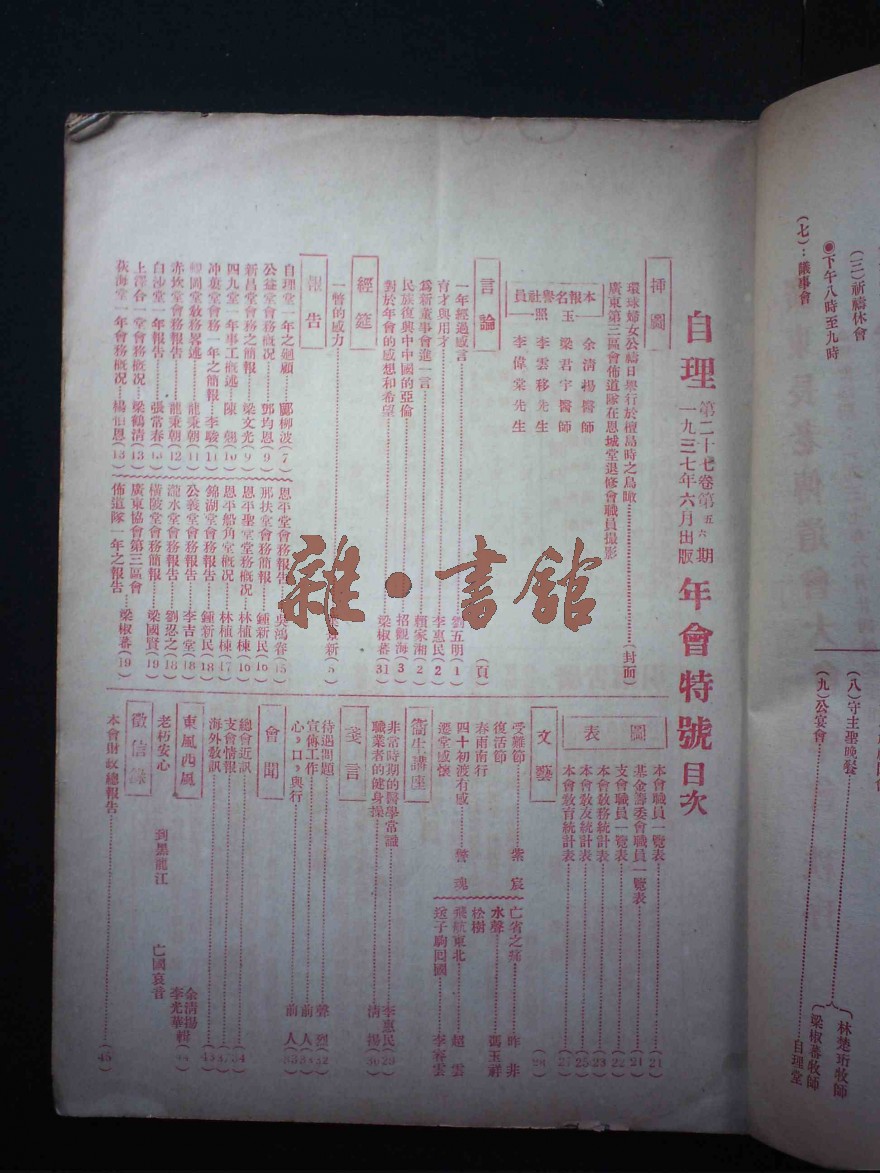 自理 第二十七卷第五六期 一九三七年六月出版 年會特號目次
插圖
環球婦女公禱日舉行於檀島時之鳥瞰……(封面)
廣東第三區會佈道隊在恩城堂退修會職員撮影
本報名譽社員玉照
余清揚醫師
梁君宇醫師
李雲移先生
李偉棠先生
言論 (頁)
一年經過感言……劉五明(1)
育才與用才……李惠民2
為新董事會進一言……賴家湘2
民族復興中中國的亞倫……招觀海3
對於年會的感想和希望……梁椒蕃(31)
經筵
一幣的威力
報告
自理堂一年之廻顧……鄺柳波(7)
公益堂會務概况……鄧均恩(9)
新昌堂會務之簡報……梁文光(9)
四九堂一年事工概述
冲蔞堂會務一年之簡報……李駿(11)
龍秉朝(11)
赤坎堂會務報告……龍秉朝(12)
白沙堂一年報告……張常春
上澤合一堂會務概况……梁鶴清(13)
荻海堂一年會務概况……楊伯恩(13)
恩平堂會務報告……吳鴻春(15)
那扶堂會務簡報……鍾新民
恩平聖堂堂務概况……林植棟
恩平船角堂概况……林植棟(17)
錦湖堂會務報告……鍾新民(18)
公義堂會務報告……李吉堂(18)
龍水堂會務報告……劉忍之(18)
橫陂堂會務簡報……梁國賢(19)
廣東協會第三區會
佈道隊一年之報告……梁椒蕃(19)
圖表
本會職員一覽表……(21)
基金籌委會職員一覽表……(21)
支會職員一覽表……(22)
本會敎務統計表……(23)
本會敎友統計表……(25)
本會敎育統計表……(27)
文藝 (28)
受難節……紫宸
復活節
春雨南行
四十初渡有感
遷堂感懷
亡省之痛……昨非
水聲……馮玉祥
松樹
飛航東北……趙雲
送子駒回國……李春雲
衞生講座
非常時期的醫學常識……李惠民
職業者的健身操……清揚
箋言
待遇問題
宣傳工作……前人
心，口，與行……前人
會聞
總會近訊
支會情報
海外敎訊
東風西風
老朽安心
到黑龍江
亡國哀音
余清揚 李光華輯
徵信錄
本會財政總報告……(45)
雜·書館
(三)祈禱休會
●下午八時至九時
(七)：議事會
(八)守主聖晚餐……林楚珩牧師 梁椒蕃牧師
(九)公宴會……自理堂